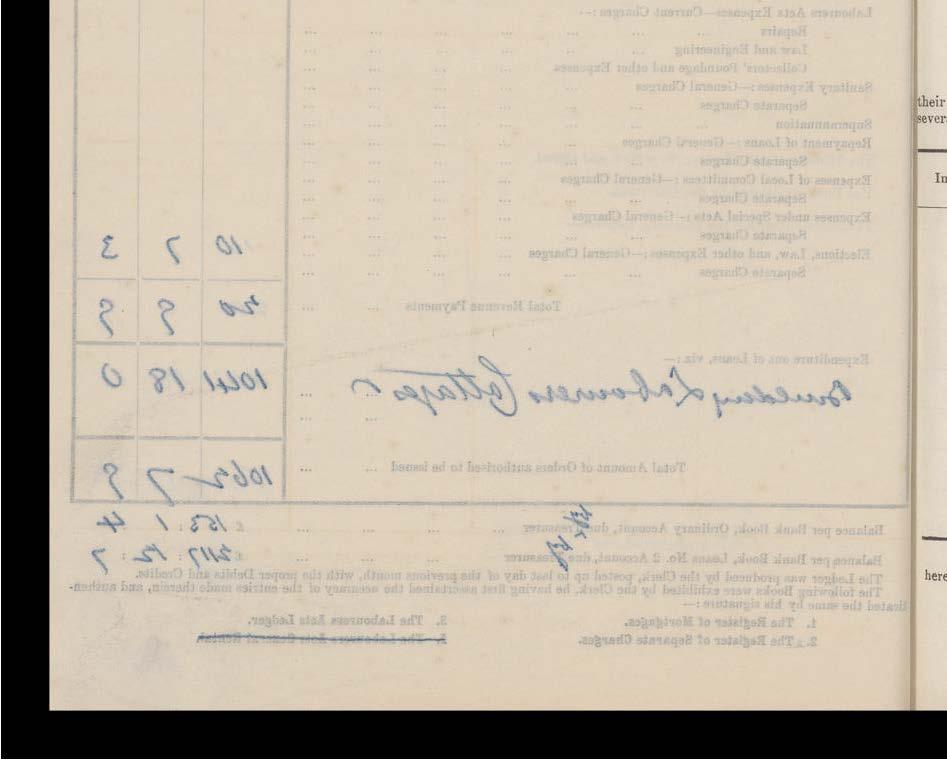 Labourers Acts Expenses—Current Charges :—
Repairs ... ... ... ... ... ...
Law and Engineering ... ... ... ... ...
Collectors' Poundage and other Expenses ... ... ... ...
Sanitary Expenses :—General Charges ... ... ... ...
Separate Charges ... ... ... ... ...
Superannuation ... ... ... ... ... ...
Repayment of Loans :—General Charges ... ... ... ...
Separate Charges ... ... ... ... ...
Expenses of Local Committees :—General Charges ... ... ...
Separate Charges ... ... ... ... ...
Expenses under Special Acts :—General Charges ... ... ... ...
Separate Charges ... ... ... ... ...
Elections, Law, and other Expenses :—General Charges ... ... ... 10 7 3
Separate Charges ... ... ... ... ...
Total Revenue Payments ... ... 20 9 9
Expenditure out of Loans, viz :—
Building Labourers Cottages ... 1041 18 0
Total Amount of Orders authorised to be issued ... ... 1062 7 9
Balance per Bank Book, Ordinary Account, due Treasurer ... ... ... £ 153 : 1 4
Balance per Bank Book, Loans No. 2 Account, due Treasurer ... ... ... £ 3117 : 12 : 7
The Ledger was produced by the Clerk, posted up to last day of the previous month, with the proper Debits and Credits.
The following Books were exhibited by the Clerk, he having first ascertained the accuracy of the entries made therein, and authen-
ticated the same by his signature :—
1. The Register of Mortgages.
2. The Register of Separate Charges.
3. The Labourers Acts Ledger.
4. The Labourers Acts General Rental.
their
sever
In
here